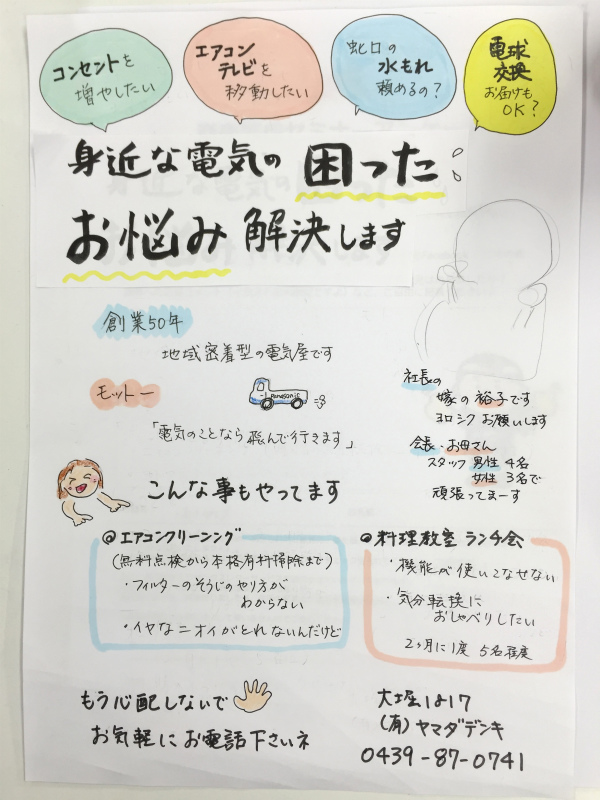 コンセントを
増やしたい
エアコン
テレビを
移動したい
蛇口の
水もれ
頼めるの?
電球
交換
お届けも
OK?
身近な電気の 困った
お悩み 解決します
創業50年
地域密着型の電気屋です
モットー
Panasonic
「電気のことなら飛んで行きます」
社長の
嫁の 裕子です
ヨロシク お願いします
会長・お田マん
スタッフ 男性 4名
女性 3名で
頑張ってまーす
こんな事もやってます
@エアコンクリーニング
(無料点検から本格有料掃除まで)
・フィルターのそうじのやり方が
わからない
・イヤなニオイがとれないんだけど
@料理教室 ランチ会
・機能が使いこなせない
・気分転換に
おしゃべりしたい
2ヶ月に1度 5名程度
もう心配しないで
お気軽にお電話下さいネ
大堀1-4-17
(有)ヤマダデンキ
0439-87-0741